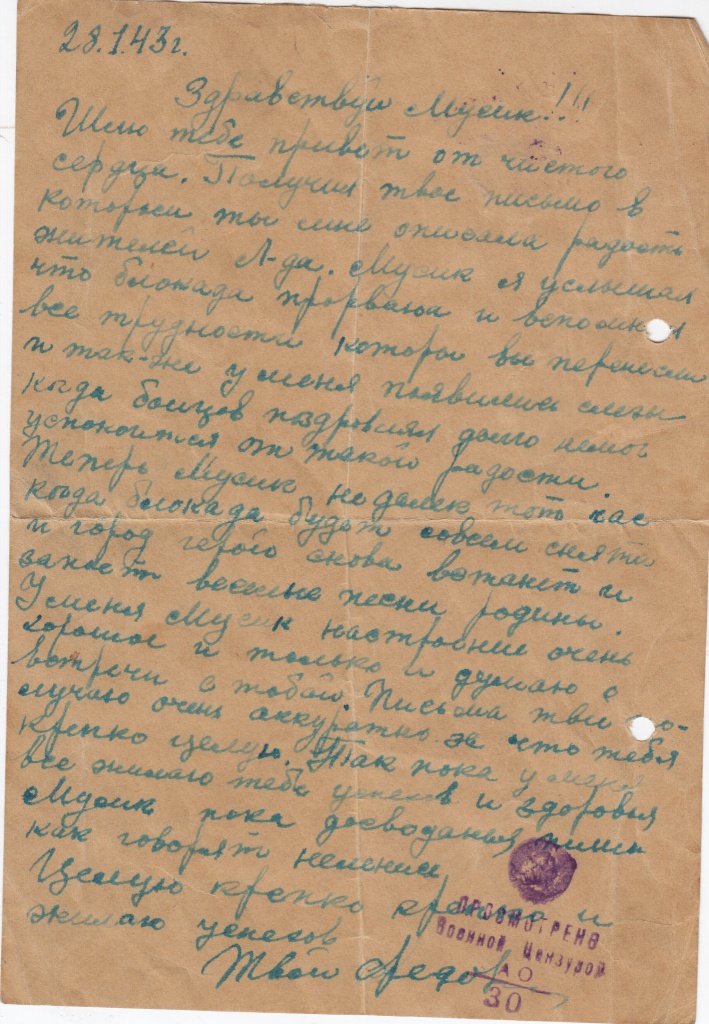 28.1.43г.
Здравствуй Мусик!!!
Шлю тебе привет от чистого
сердца. Получил твое письмо в
котором ты мне описала радость
жителей Л-да. Мусик я услышал
что блокада прорвана и вспомнил
все трудности которы вы перенесли
и так-же у меня появились слезы
когда бойцов поздровлял долго немог
успокоится от такой радости.
Теперь Мусик не далек тот час
когда блокада будет совсем снята
и город герой снова встанет и
запоет веселые песни родины.
У меня Мусик настроение очень
хорошое и только и думаю о
встречи с тобой. Письма твои по-
лучаю очень аккуратно за что тебя
крепко целую. Так пока у меня
все желаю тебе успехов и здоровья
Мусик пока досводанья пиши
как говорят неленись
Целую крепко крепко и
желаю успехов
Твой Федор
ПРОСМОТРЕНО
Военной Цензурой
30